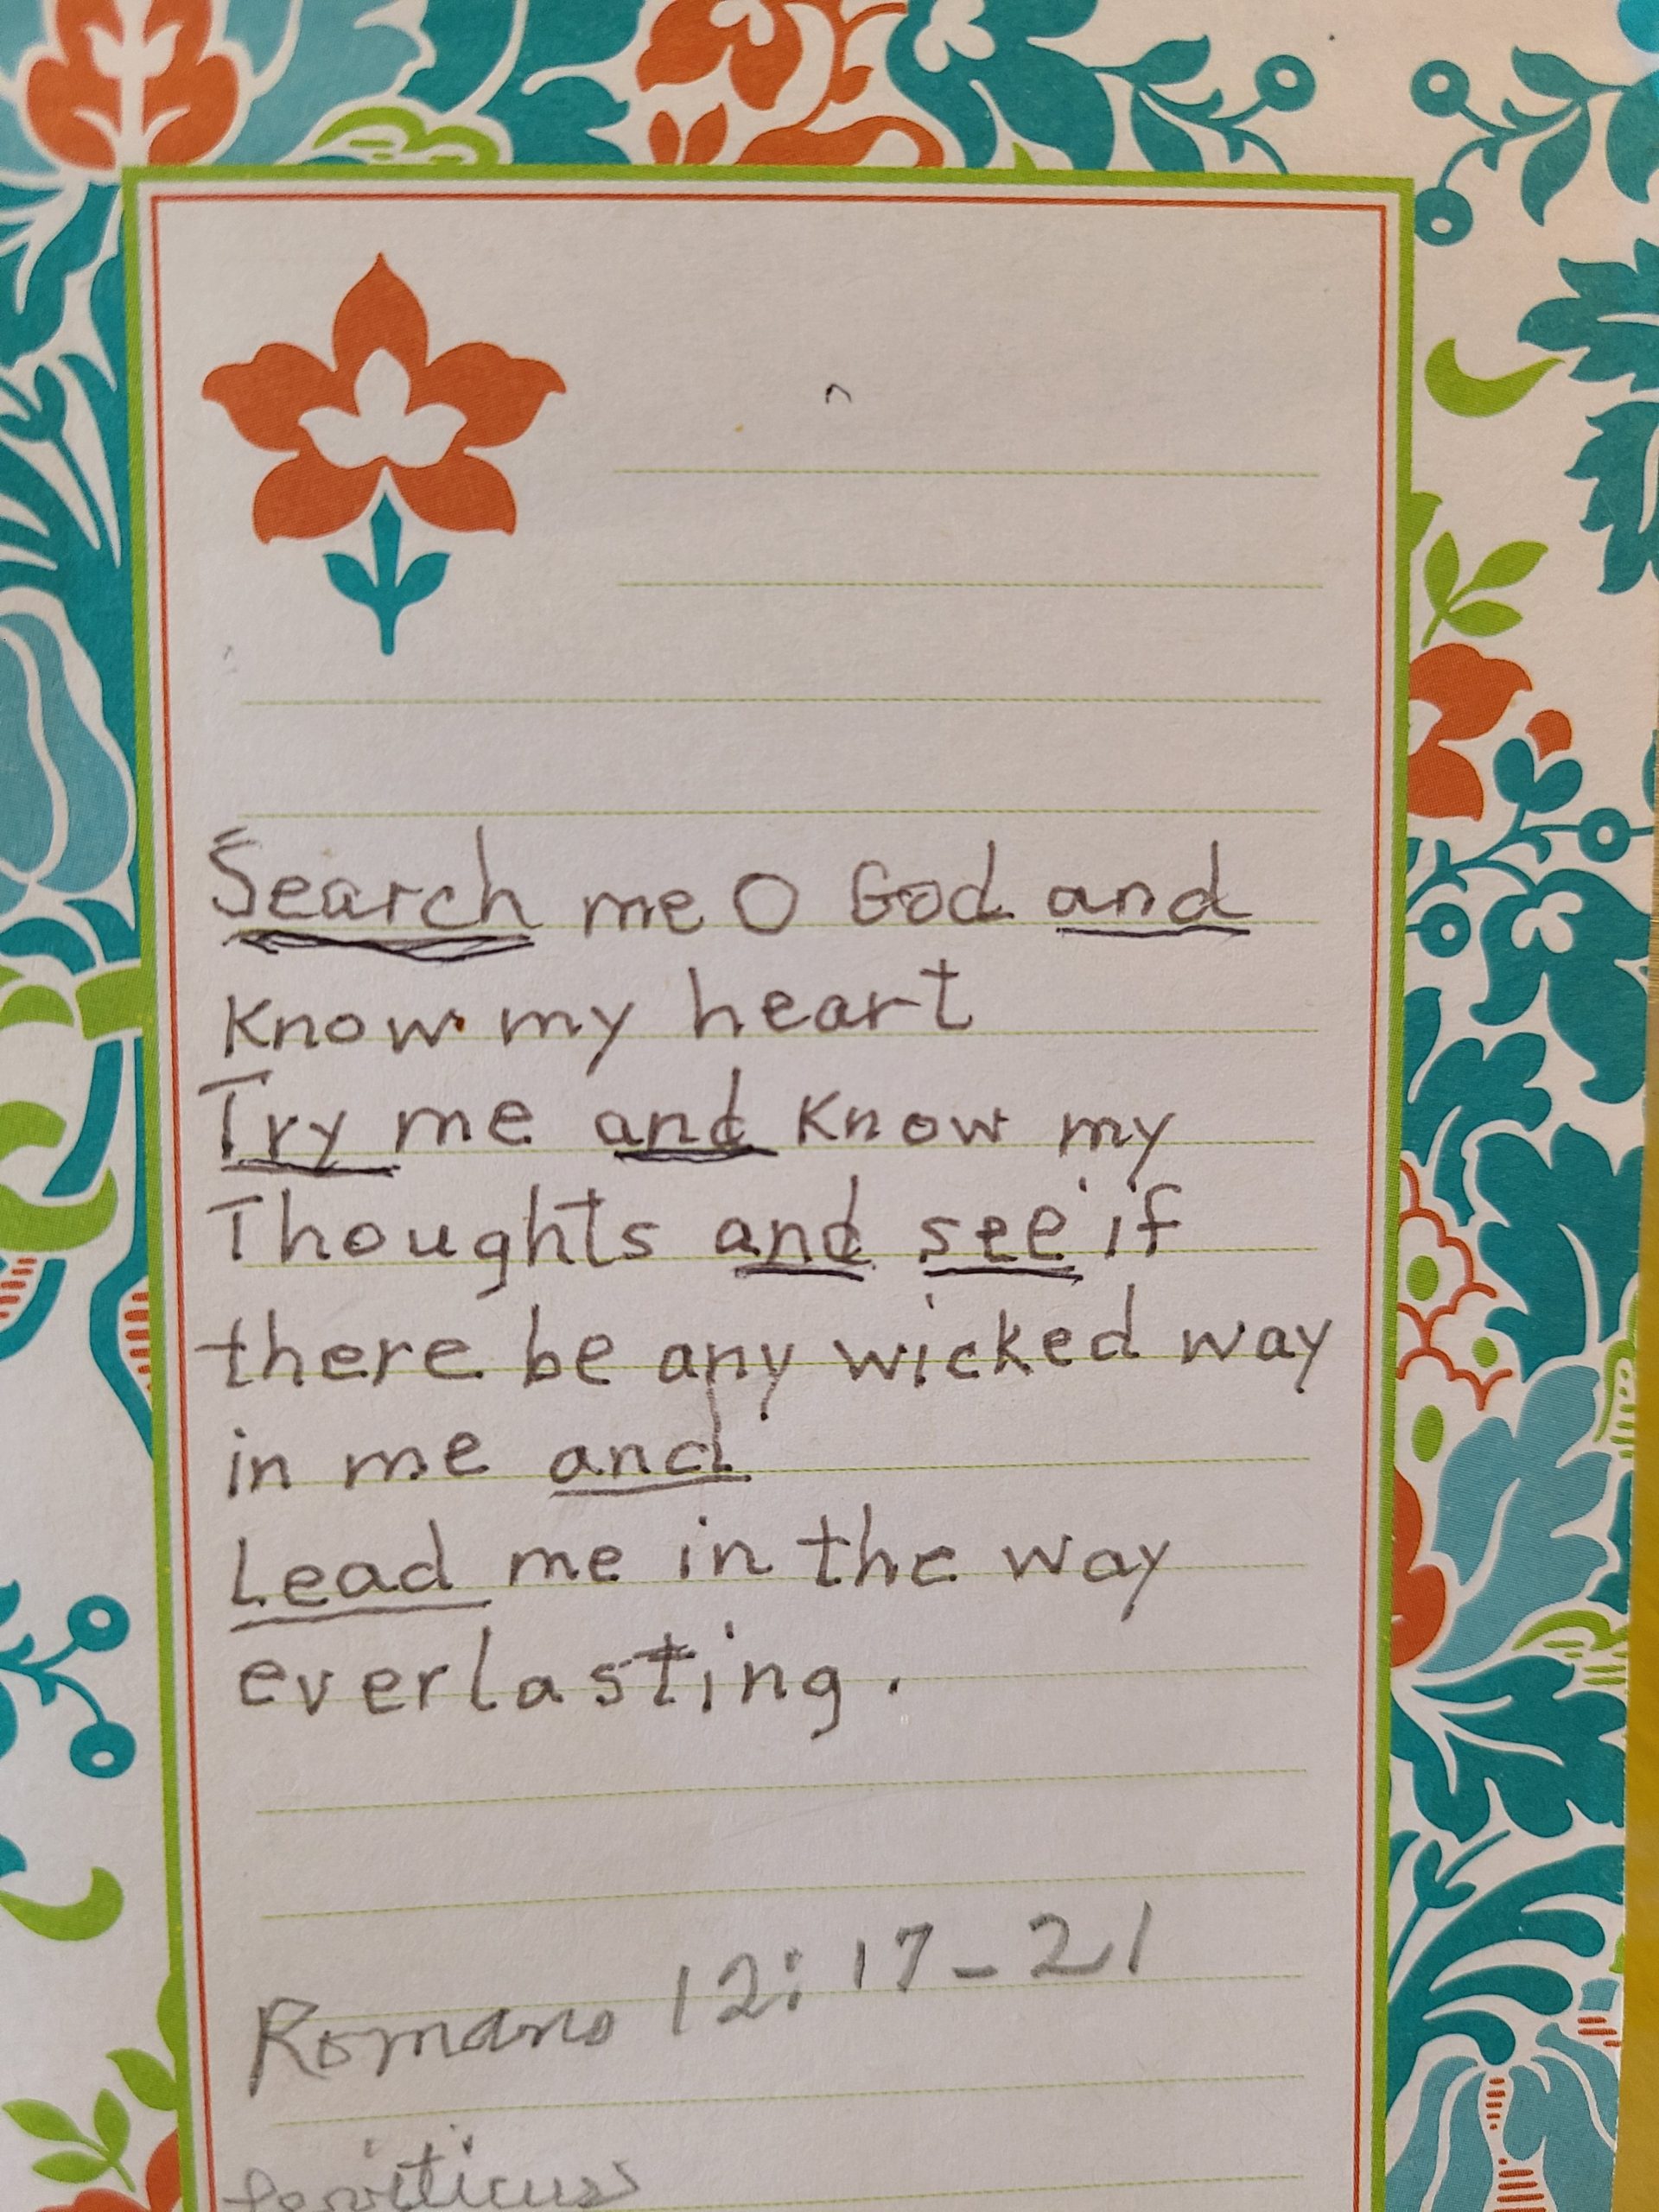 Search me O God and
Know my heart
Try me and Know my
Thoughts and see if
there be any wicked way
in me and
Lead me in the way
everlasting.
Romans 12:17-21
Leviticus